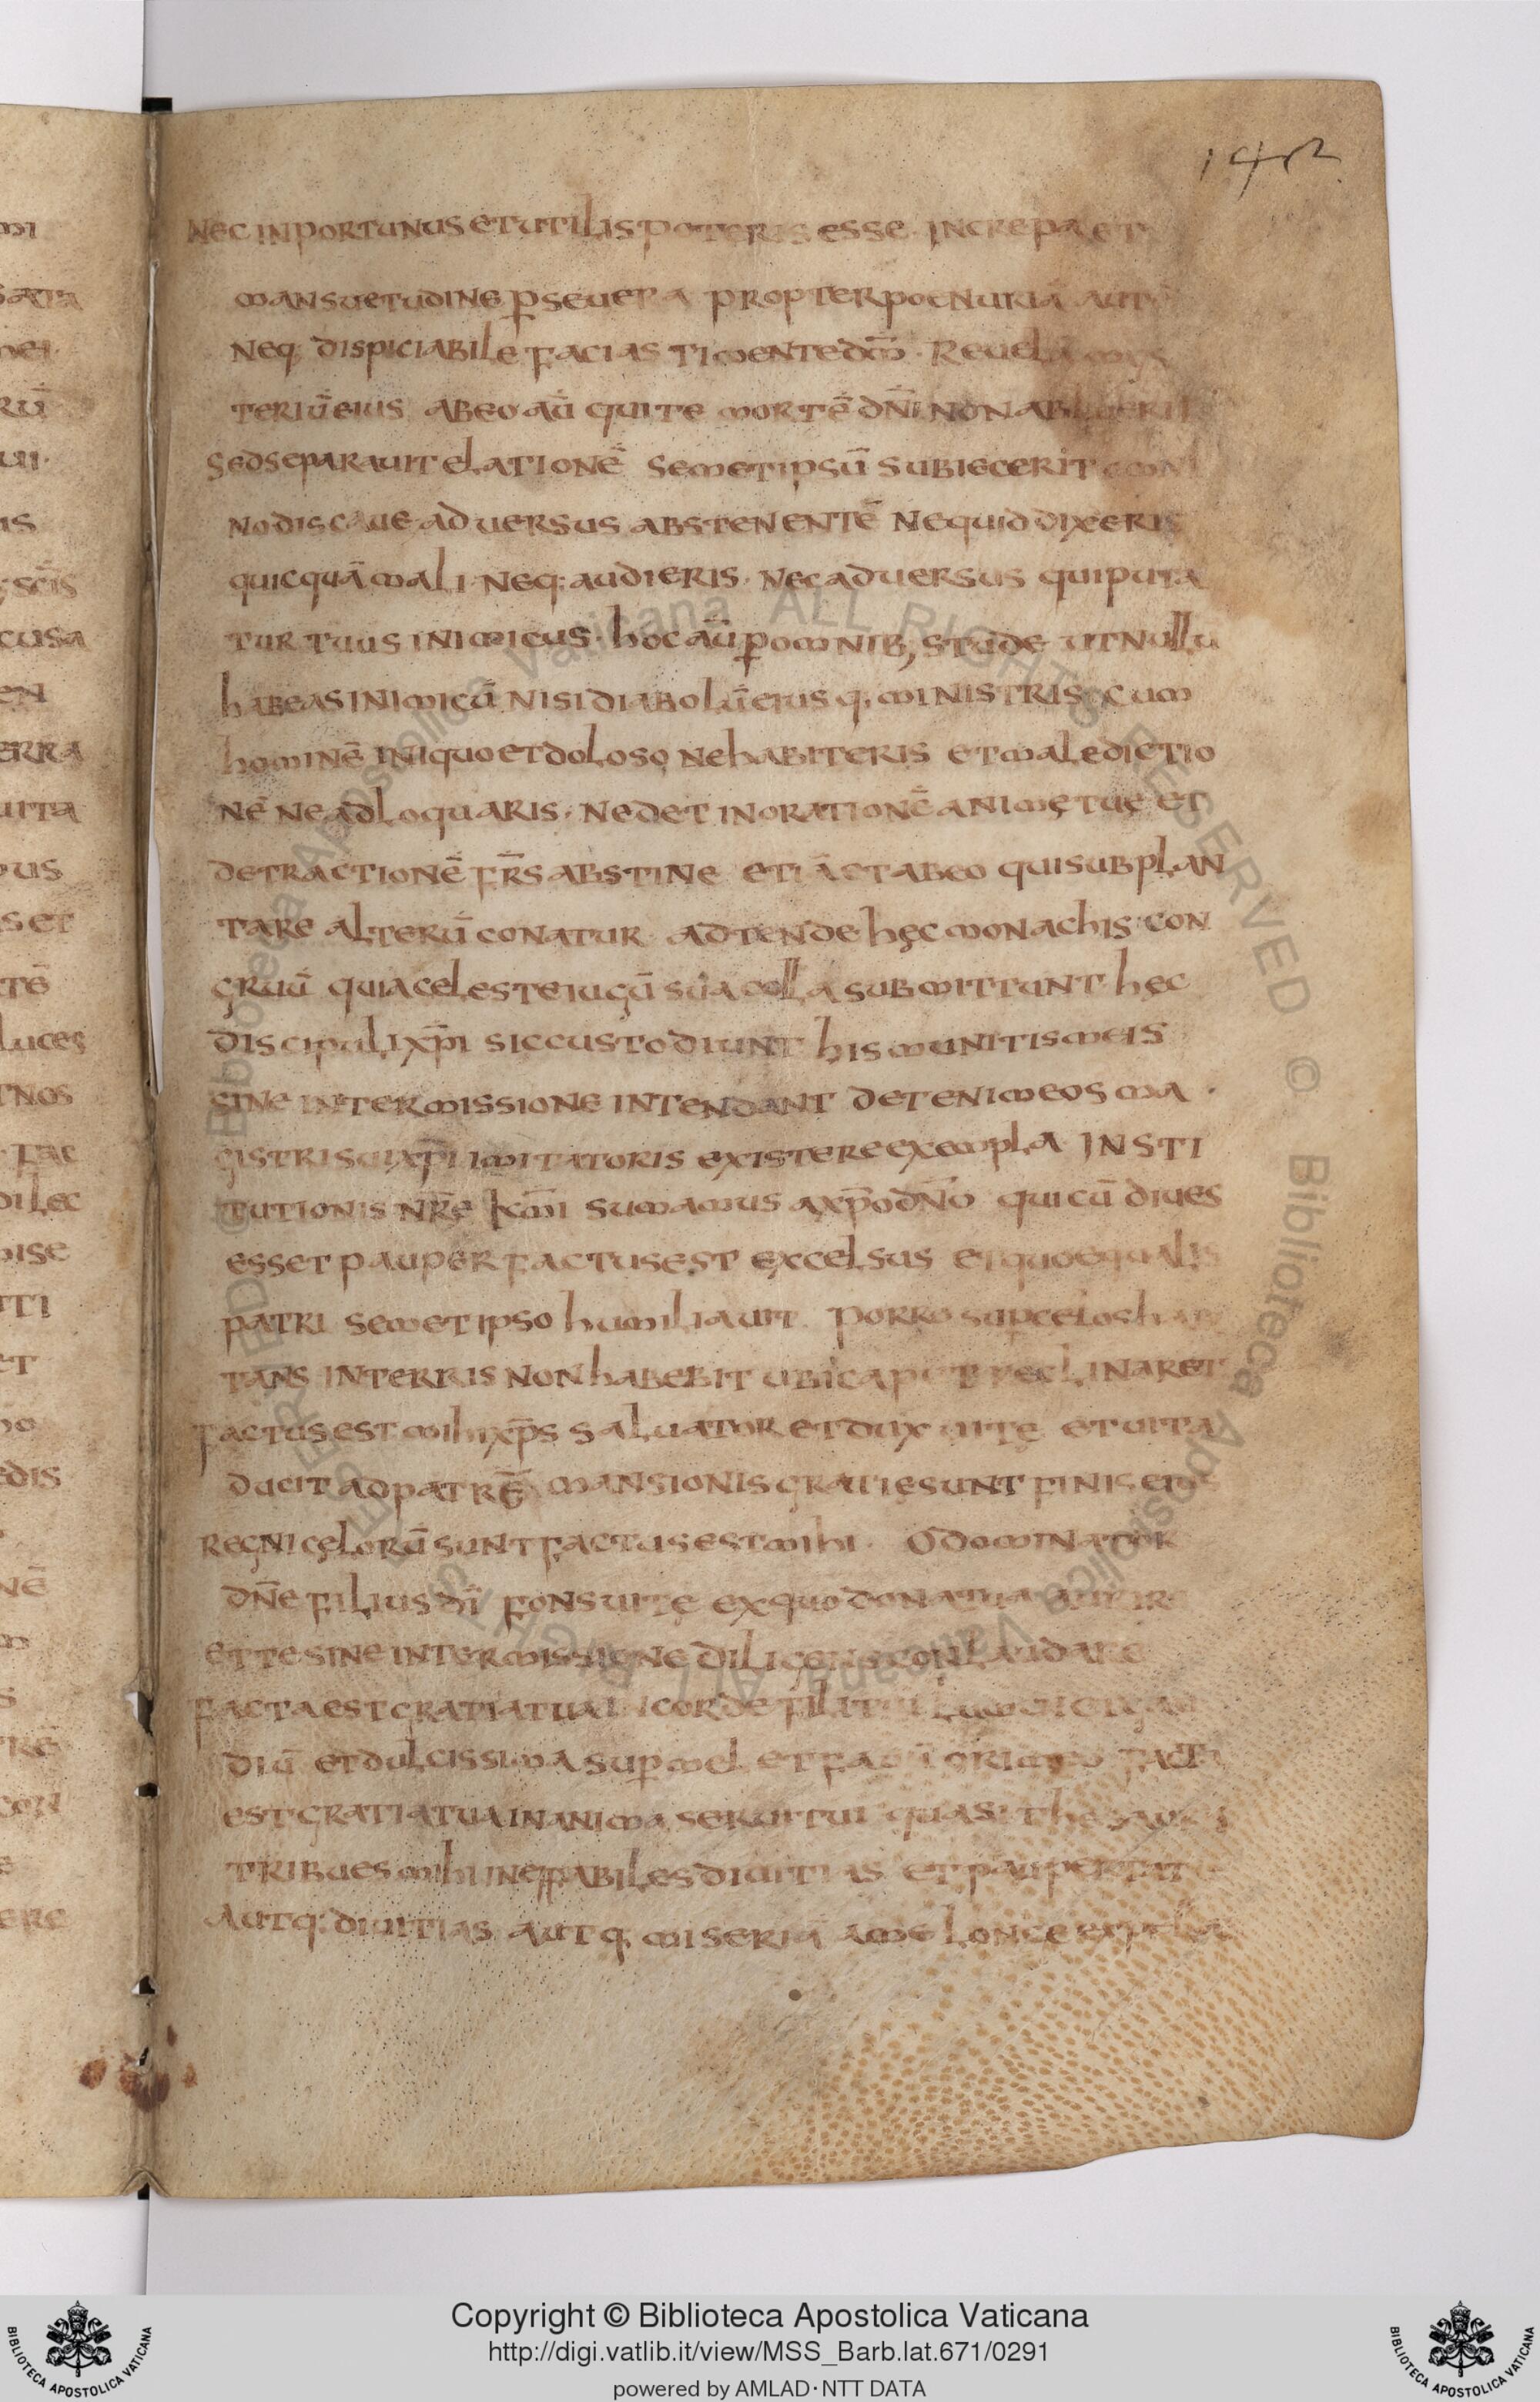 142
nec inportunus et utilis poteris esse. increpa et
mansuetudine p̱seuera propter poenuriā aut
neq; dispiciabile facias timente dm̄. Reuela mys
teriū eius ab eo aū qui te mortē dn̄i non
sed separauit elationē semetipsū subiecerit omni
nodis caue aduersus abstenentē nequid dixeris
quicquā mali neq; audieris. nec aduersus qui puta
tur tuus inimicus. hoc aū p̱ omnib; stude ut nullū
habeas inimicū nisi diabolū eiusq; ministris cum
hominē iniquo et doloso ne habiteris et maledictio
nē ne adloquaris. ne det in orationē animę tuę et
detractionē fr̄s abstine etiā et ab eo qui subplan
tare alterū conatur adtende hęc monachis con
gruū quia celeste iugū sua colla submittunt hęc
discipuli xp̄i sic custodiunt his munitis meis
sine intermissione intendant detenim eos ma
gistri sui xp̄i imitatoris existere exempla Insti
tutionis nr̄e km̄i sumamus a xp̄o dn̄o qui cū diues
esset pauper factus est excelsus et quo equalis
patri semetipso humiliauit porro sup̱ celos habi
tans in terris non habebit ubi caput reclinaret
factus est mihi xp̄s saluator et dux uite et uita
ducit ad patrē mansionis gratię sunt finis eius
regni cęlorū sunt factus est mihi. O dominator
dn̄e filius dī fons uitę ex quo dona tua
et te sine intermissione diligens conlaudare
facta est gratia tua in corde filii tui lumen et gau
diū et dulcissima sup̱ mel et fauū ori meo facta
est gratia tua in anima serui tui quasi thesaurus
tribues mihi inep̱pabiles diuitias et paupertate
autq; diuitias autq; miseriā a me longe expelle
Copyright © Biblioteca Apostolica Vaticana
http://digi.vatlib.it/view/MSS_Barb.lat.671/0291
powered by AMLAD·NTT DATA
BIBLIOTECA APOSTOLICA VATICANA
BIBLIOTECA APOSTOLICA VATICANA